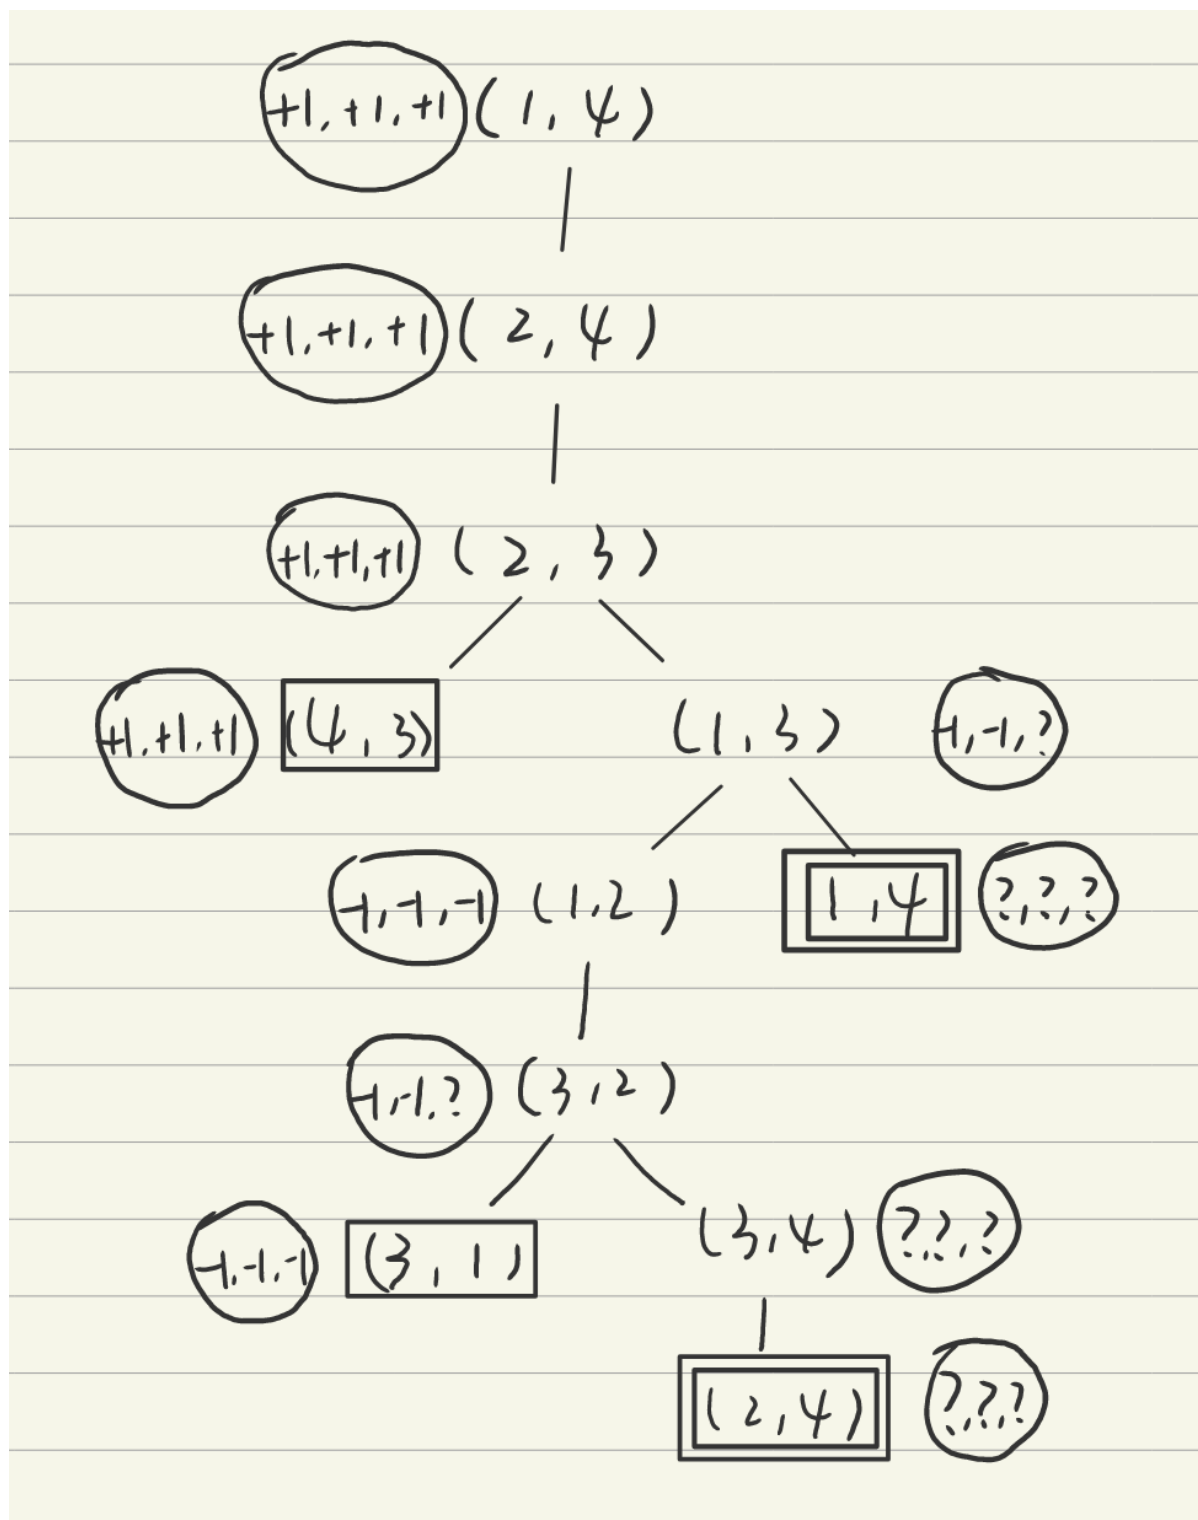 +1, +1, +1 (1, 4)
+1, +1, +1 (2, 4)
+1, +1, +1 (2, 3)
+1, +1, +1 (4, 3) (1, 3) -1, -1, ?
-1, -1, -1 (1, 2) 1, 4 ?, ?, ?
-1, -1, ? (3, 2)
-1, -1, -1 (3, 1) (3, 4) ?, ?, ?
(2, 4) ?, ?, ?